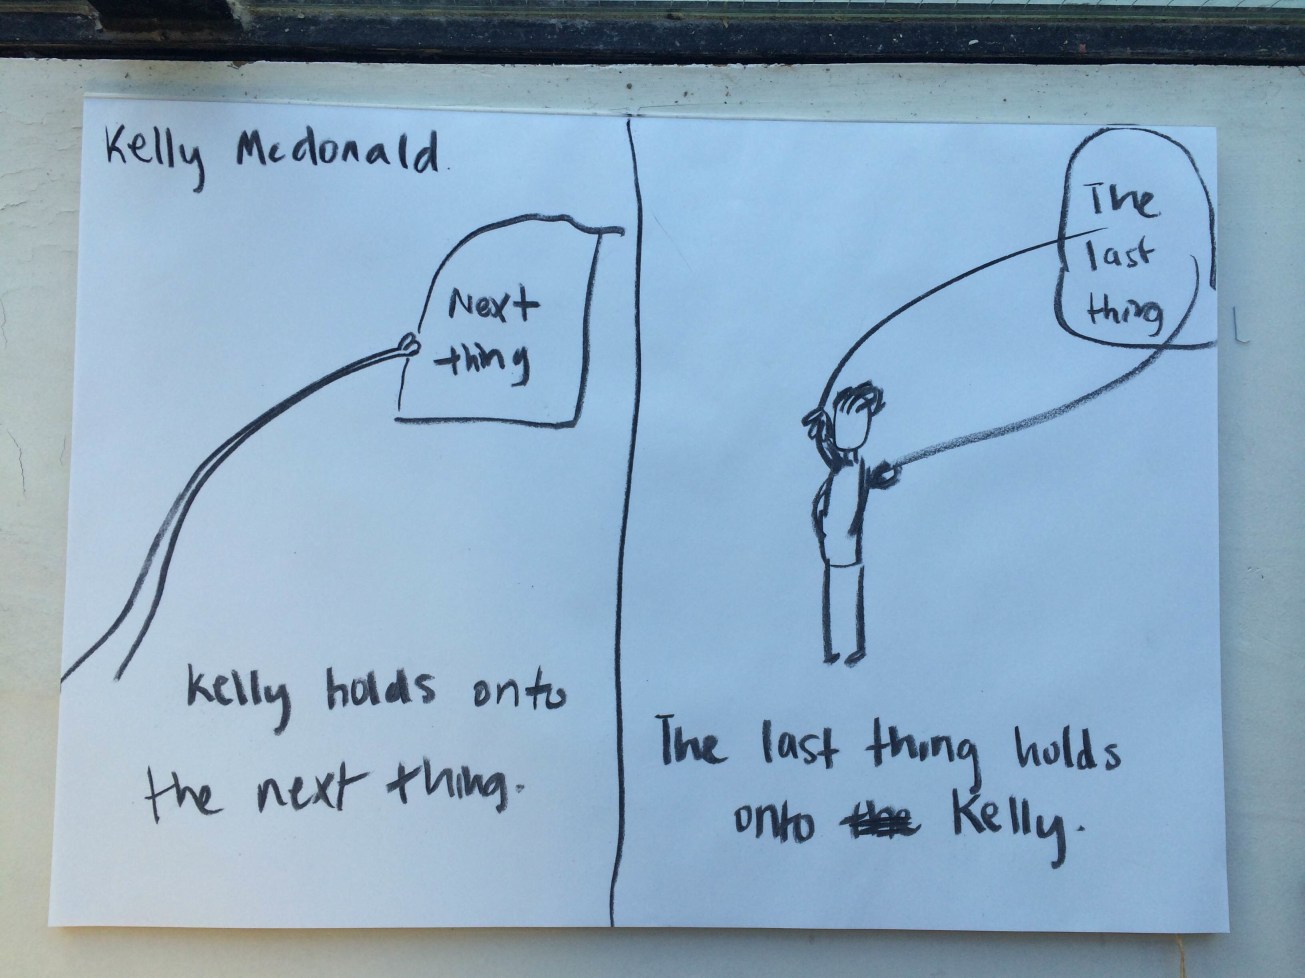 Kelly Mcdonald.
Next
thing
Kelly holds onto
the next thing.
The
last
thing
The last thing holds
onto the Kelly.